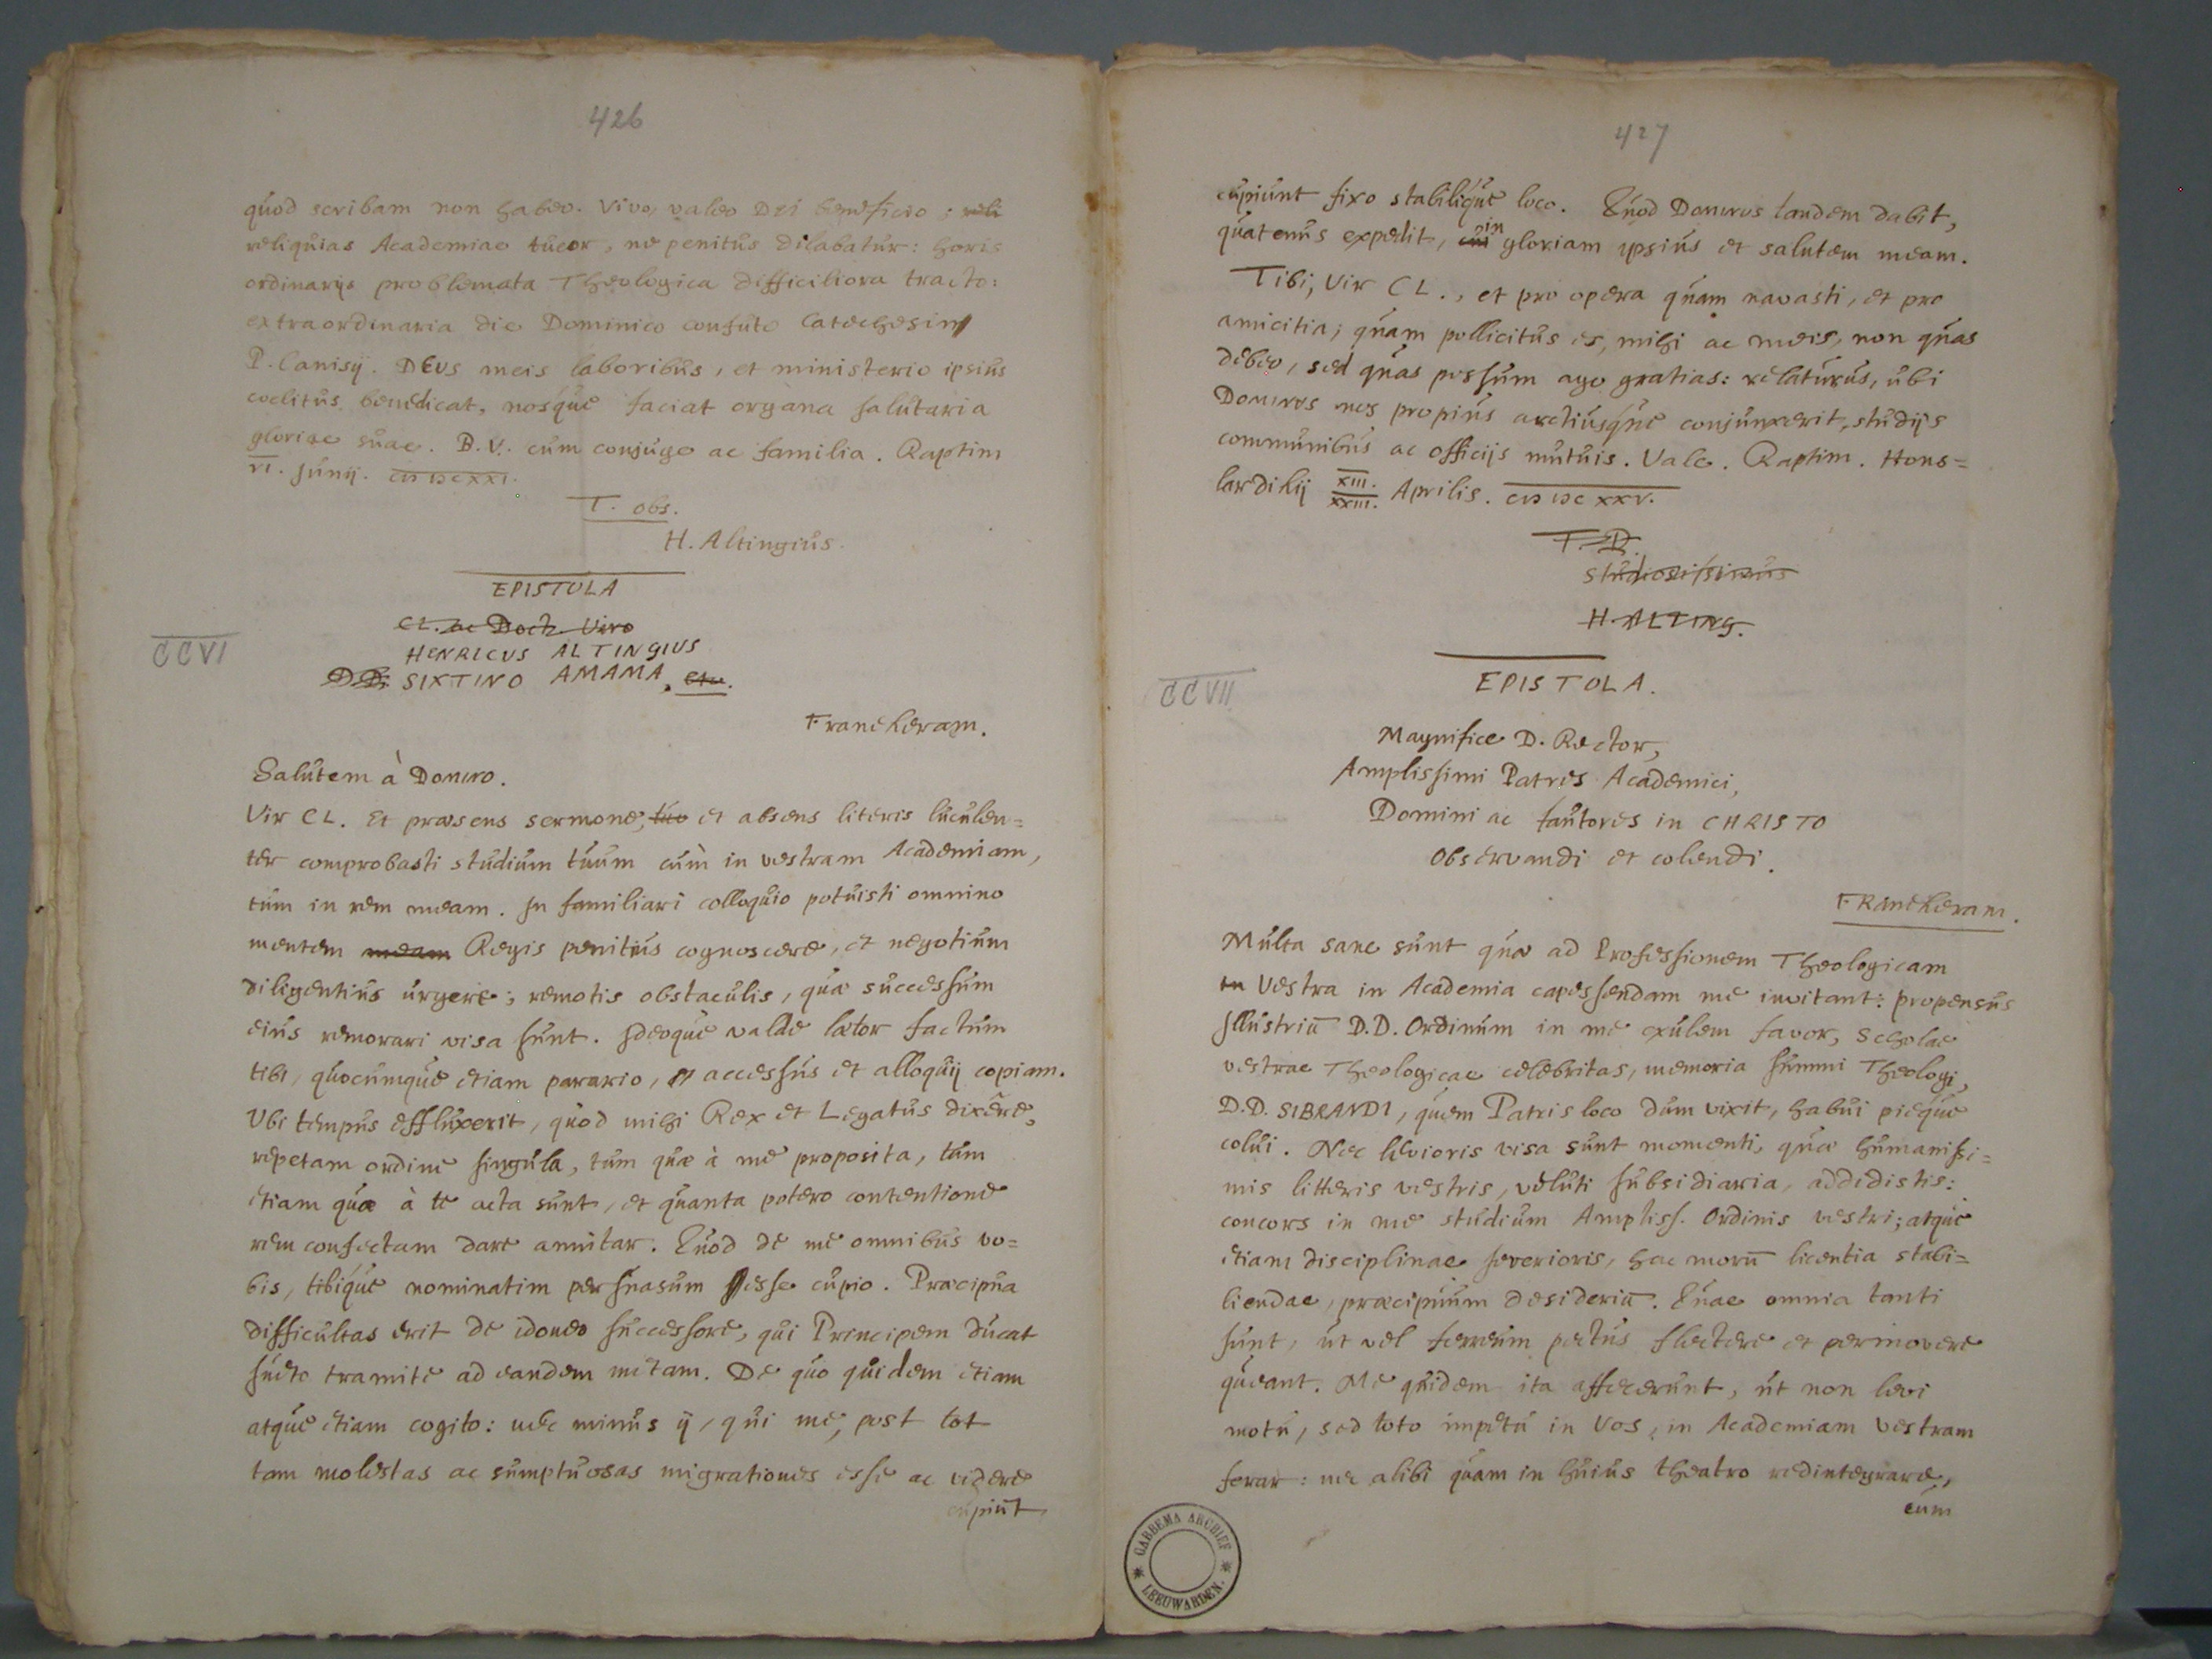 426
quod scribam non habeo. Vivo, valeo DEI beneficio; reli
reliquias Academiae tueor, ne penitus dilabatur: horis
ordinarijs problemata Theologica difficiliora tracto:
extraordinaria die Dominico confuto Catechesin
P. Canisij. DEUS meis laboribus, et ministerio ipsius
coelitus benedicat, nosque faciat organa salutaria
gloriae suae. B.V. cum conjuge ac familia. Raptim
VI. Junij. CIↃ IↃC XXI.
T. obs.
H. Altingius.
EPISTOLA
Cl. ac Doct. Viro
HENRICUS ALTINGIUS
D.D. SIXTINO AMAMA, etc.
CCVI
Franekeram.
Salutem à Domino.
Vir CL. Et praesens sermone, tuo et absens literis luculen=
ter comprobasti studium tuum cum in vestram Academiam,
tum in rem meam. In familiari colloquio potuisti omnino
mentem meam Regis penitius cognoscere, et negotium
diligentius urgere; remotis obstaculis, quae successum
eius remorari visa sunt. Ideoque valde laetor factum
tibi, quocumque etiam parario, accessus et alloquij copiam.
Ubi tempus effluxerit, quod mihi Rex et Legatus dixere,
repetam ordine singula, tum quae à me proposita, tum
etiam quae à te acta sunt, et quanta potero contentione
rem confectam dare annitar. Quod de me omnibus vo=
bis, tibique nominatim persuasum esse cupio. Praecipua
difficultas erit de idoneo successore, qui Principem ducat
sueto tramite ad eandem metam. De quo quidem etiam
atque etiam cogito: nec minus ij, qui me, post tot
tam molestas ac sumptuosas migrationes esse ac videre
cupiunt
427
cupiunt fixo stabilique loco. Quod Dominus tandem dabit,
quatenus expedit, in gloriam ipsius et salutem meam.
Tibi, Vir CL., et pro opera quam navasti, et pro
amicitia, quam pollicitus es, mihi ac meis, non quas
debeo, sed quas possum ago gratias: relaturus, ubi
Dominus nos propius arctiusque conjunxerit, studijs
communibus ac officijs mutuis. Vale. Raptim. Hons=
lardikij XIII. XXIII. Aprilis. CIↃ IↃC XXV.
T.D.
studiosissimus
H. ALTING.
EPISTOLA.
CCVII
Magnifice D. Rector,
Amplissimi Patres Academici,
Domini ac fautores in CHRISTO
observandi et colendi.
FRanekeram.
Multa sane sunt quae ad Professionem Theologicam
in Vestra in Academia capessendam me invitant: propensus
Illustriū D.D. Ordinum in me exulem favor, Scholae
vestrae Theologicae celebritas, memoria summi Theologi,
D.D. SIBRANDI, quem Patris loco dum vixit, habui pieque
colui. Nec levioris visa sunt momenti, quae humanissi=
mis litteris vestris, veluti subsidiaria, addidistis:
concors in me studium Ampliss. Ordinis vestri; atque
etiam disciplinae severioris, hac morū licentia stabi=
liendae, praecipuum desideriū. Quae omnia tanti
sunt, ut vel ferreum pectus flectere et permovere
queant. Me quidem ita affecerunt, ut non levi
motu, sed toto impetu in Vos, in Academiam vestram
ferar: nec alibi quam in huius theatro redintegrare,
cum
GABBEMA ARCHIEF
LEEUWARDEN.